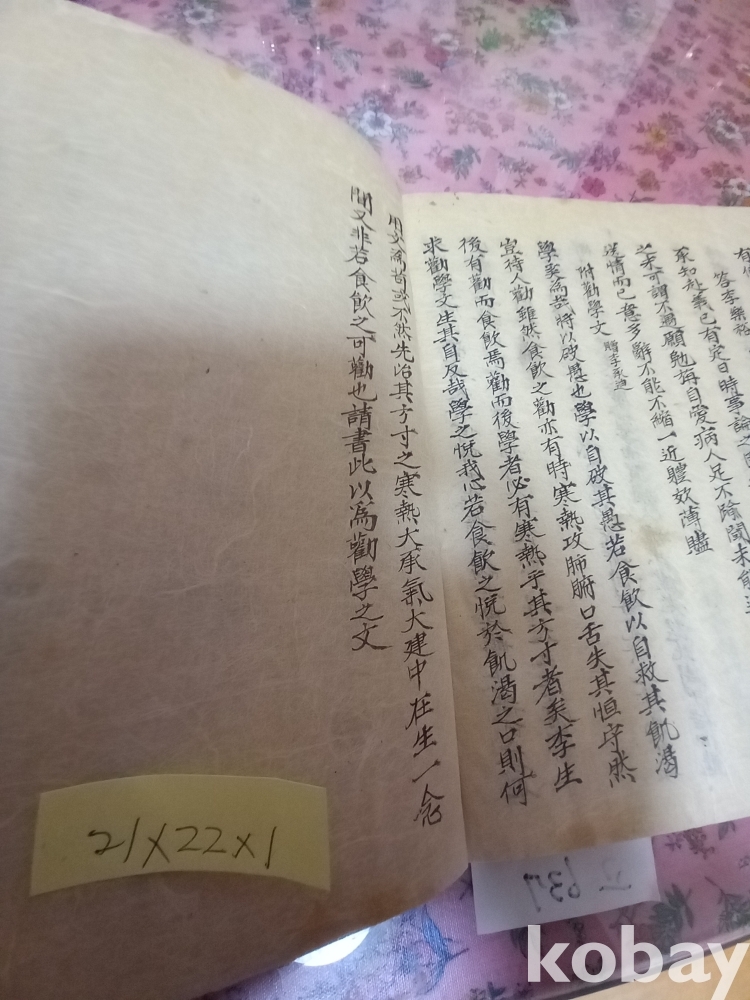 答李樂
承知赴義已有定日時事論之
之來可謂不遇願勉旃自愛病人足不除閾未
送情而已意多辭不能不縮一近體效薄贐
附勸學文 贈李承迪
學奚爲哉將以破愚也學以自破其愚若食飮以自救其飢渴
豈待人勸雖然食飮之勸亦有時寒熱攻肺腑口舌失其恒守然
後有勸而食飮焉勸而後學者必有寒熱乎其方寸者矣李生
求勸學文生其自反哉學之悅我心若食飮之悅於飢渴之口則何
用文爲若或不然先治其方寸之寒熱大承氣大建中在生一念
間又非若食飮之可勸也請書此以爲勸學之文
21×22×1
637
kobay